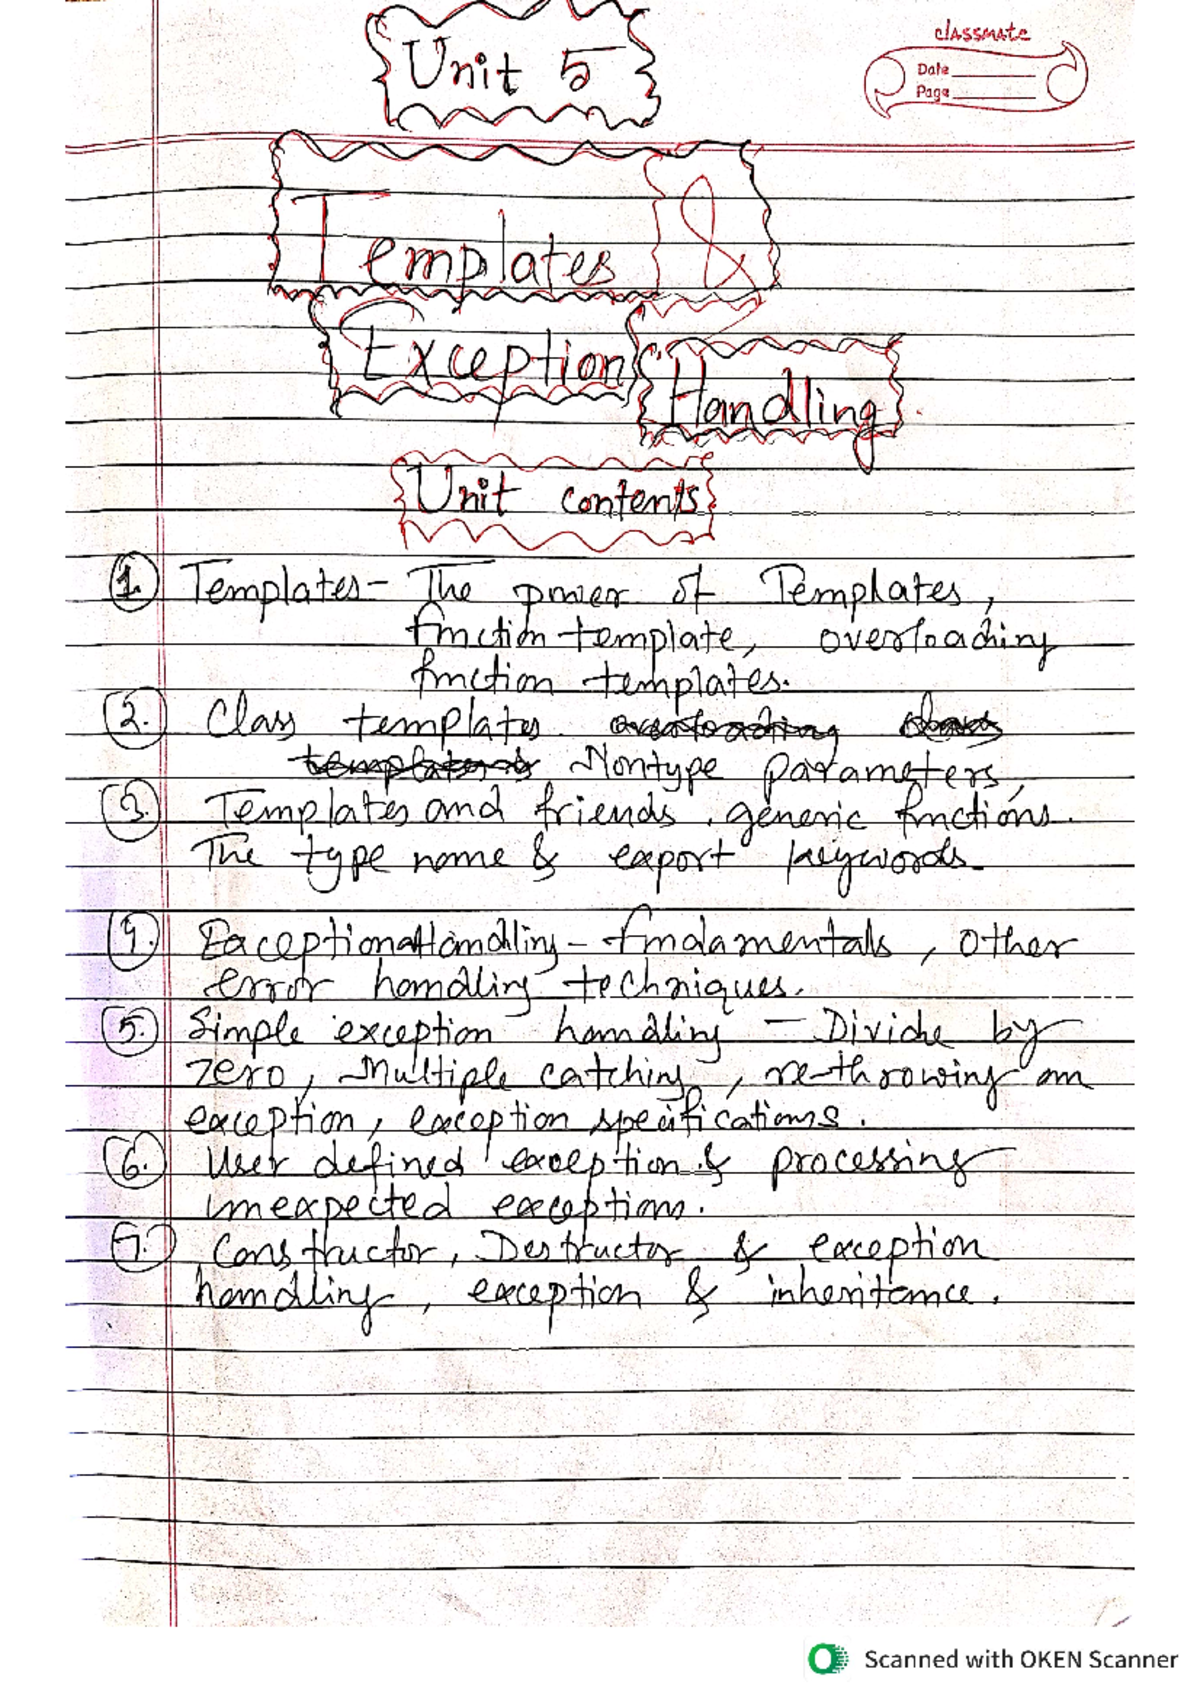 Unit 5
classmate
Date
Page
Templates &
Exception
Handling
Unit contents
1. Templates- The power of Templates,
function template, overloading
function templates.
2. Class templates overloading class
templates Nontype parameters,
3. Templates and friends, generic functions.
The type name & export keywords
4. Exception Handling - fundamentals, other
error handling techniques.
5. Simple exception handling - Divide by
zero, Multiple catching, re-throwing an
exception, exception specifications.
6. User defined exception & processing
unexpected exceptions.
7. Constructor, Destructor & exception
handling, exception & inheritance.
Scanned with OKEN Scanner